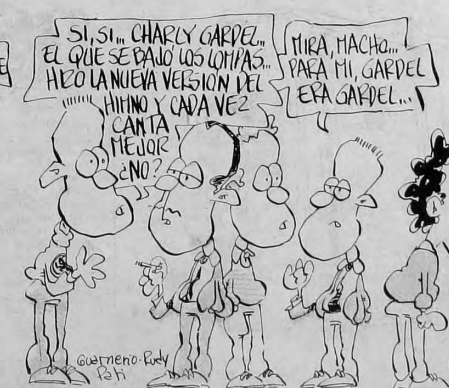 SI, SI... CHARLY GARDEL...
EL QUE SE BAJÓ LOS LOMPAS...
HIZO LA NUEVA VERSIÓN DEL
HIMNO Y CADA VEZ
CANTA
MEJOR
¿NO?
MIRA, MACHO...
PARA MI, GARDEL
ERA GARDEL...
E
Guarnerio-Rudy
Pati